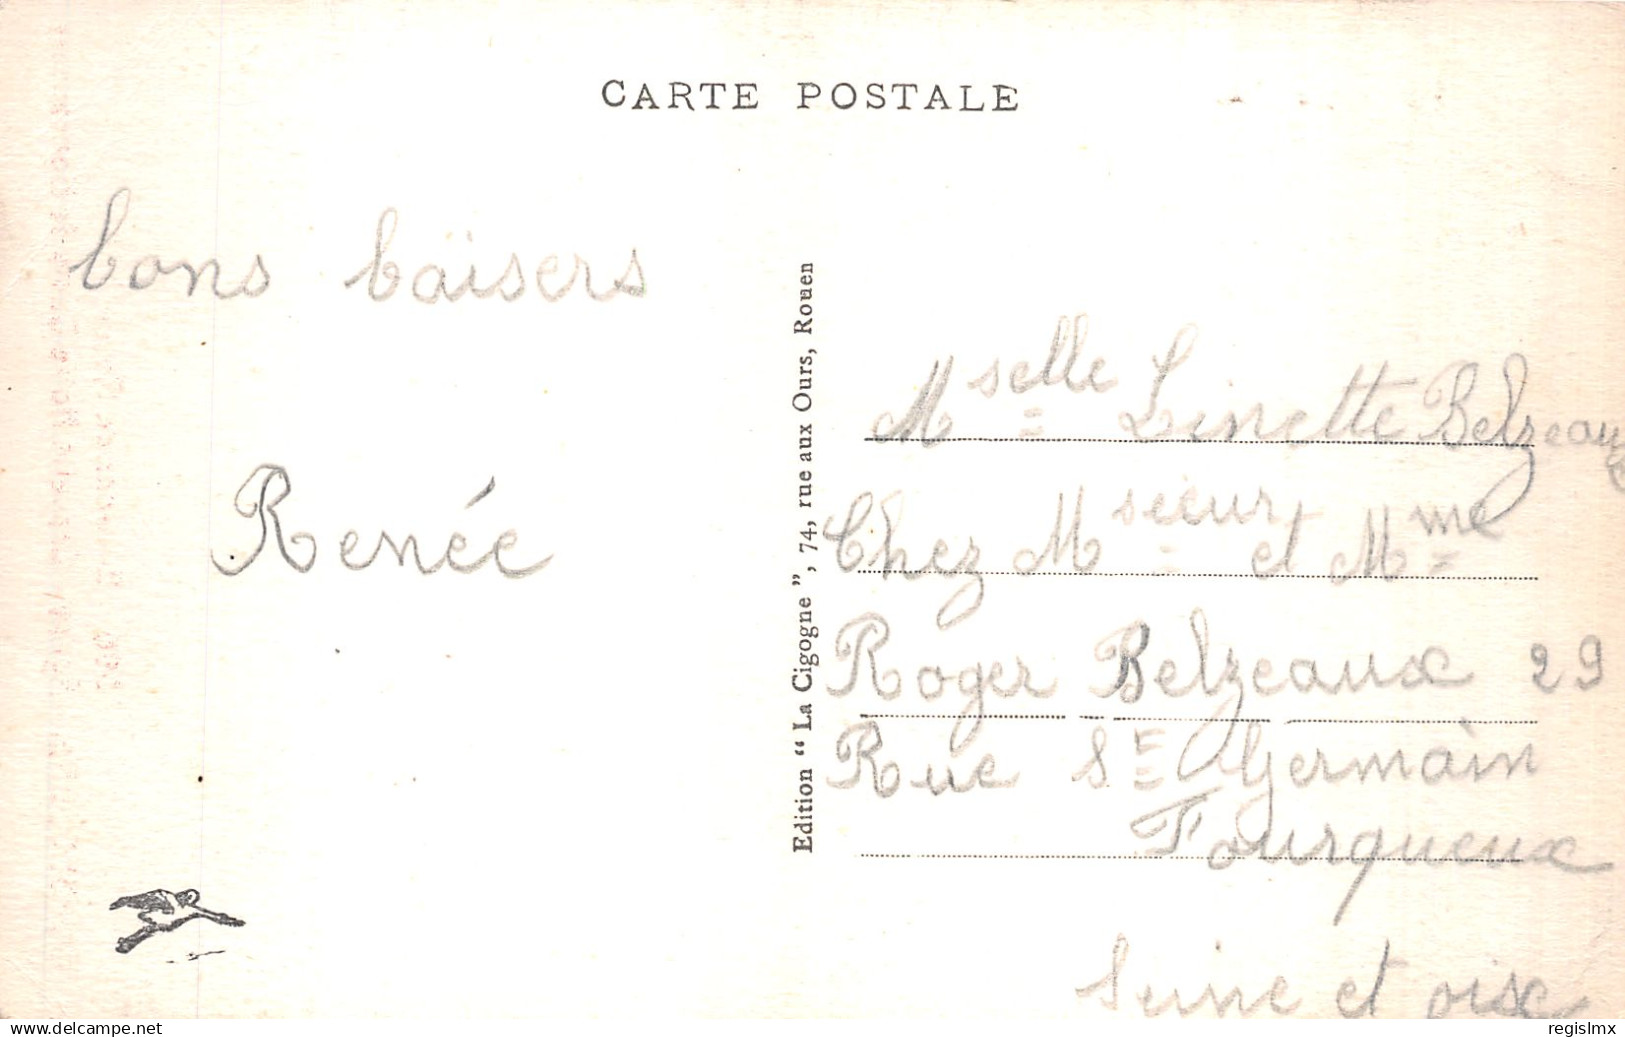 CARTE POSTALE
bons baisers
Renée
Edition “ La Cigogne ”, 74, rue aux Ours, Rouen
Mselle Linette Belzeaux
Chez Msieur et Mme
Roger Belzeaux 29
Rue St Germain
Fourqueux
Seine et oise
delcampe.net
regislmx